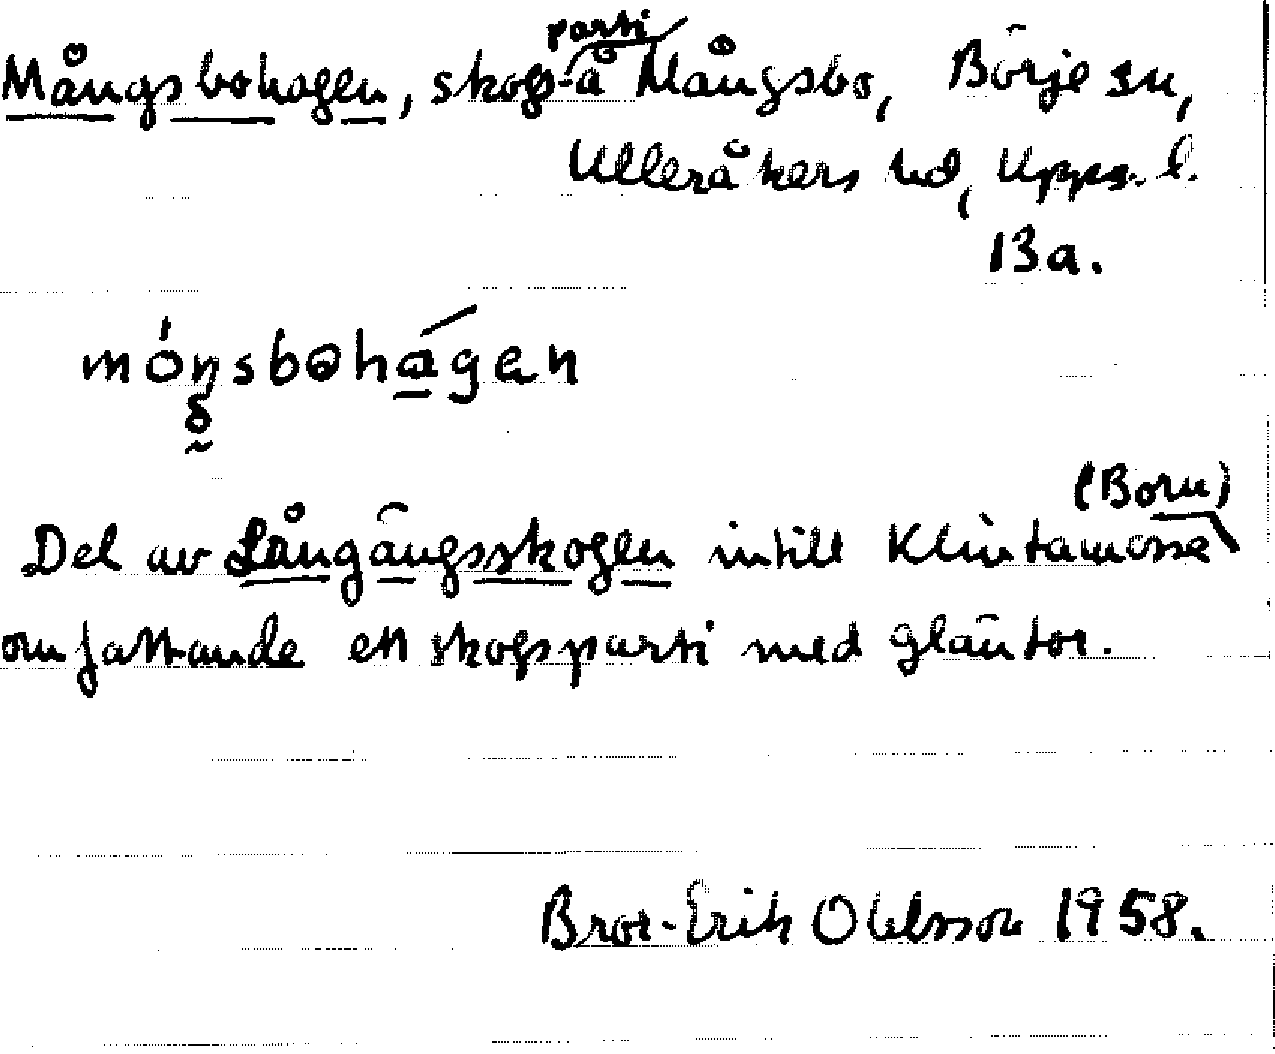 Mångsbohagen, skogsparti å Mångsbo, Börje sn,
Ulleråkers hd, Upps. l.
13a.
móŋsbohágen
Del av Långängsskogen intill Klintamossa (Born)
omfattande ett skogsparti med gläntor.
Bror-Erik Ohlsson 1958.